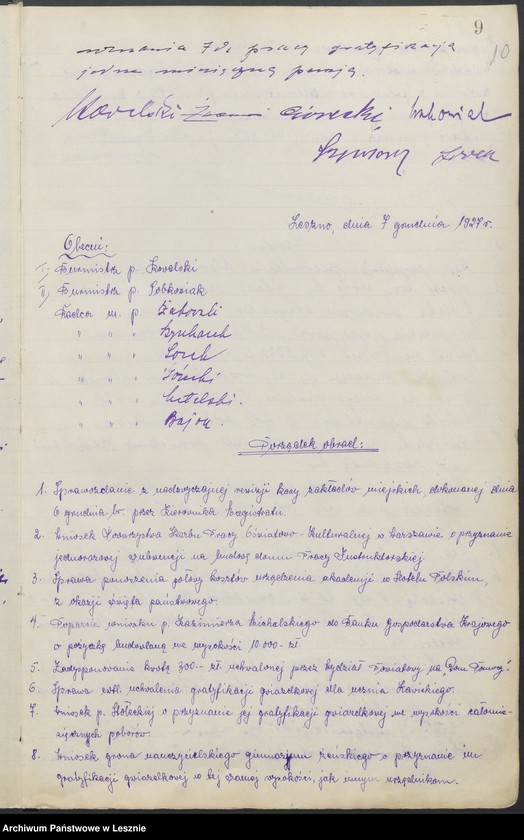 9
10
uznania za pracę gratyfikację
jedną miesięczną pensją.
Kowalski
Leszno, dnia 7 grudnia 1927 r.
Obecni:
I) Burmistrz p. Kowalski
II) Burmistrz p. Sobkowiak
Radca m. p.
" " "
" " " Sorek
" " " Górecki
" " "
" " "
Porządek obrad:
1. Sprawozdanie z nadzwyczajnej rewizji kasy zakładów miejskich dokonanej dnia
6 grudnia br. przez Kierownika Magistratu.
2. Wniosek Towarzystwa Skarbu Pracy Oświatowo-Kulturalnej w Warszawie o przyznanie
jednorazowej subwencji na budowę domu Pracy Instruktorskiej
3. Sprawa ponoszenia połowy kosztów urządzenia akademji w Hotelu Polskim,
z okazji święta państwowego.
4. Poparcie wniosku p. Kazimierza Michalskiego do Banku Gospodarstwa Krajowego
o pożyczkę budowlaną we wysokości 10.000 zł.
5. Zadysponowanie kwoty 300.- zł. uchwalonej przez Wydział Powiatowy na
6. Sprawa ewtl. uchwalenia gratyfikacji gwiazdkowej dla ucznia Kawickiego.
7. Wniosek p. o przyznanie jej gratyfikacji gwiazdkowej we wysokości całomie-
sięcznych poborów.
8. Wniosek grona nauczycielskiego gimnazjum żeńskiego o przyznanie im
gratyfikacji gwiazdkowej w tej samej wysokości, jak innym urzędnikom.
Archiwum Państwowe w Lesznie